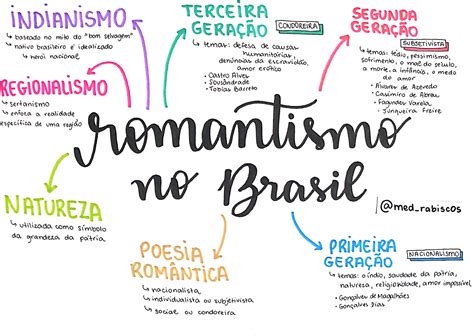 INDIANISMO
↳ baseado no mito do "bom selvagem"
↳ nativo brasileiro é idealizado
↳ herói nacional
TERCEIRA
GERAÇÃO
CONDOREIRA
↳ temas: defesa de causas
humanitárias,
denúncias da escravidão,
amor erótico
• Castro Alves
• Sousândrade
• Tobias Barreto
SEGUNDA
GERAÇÃO
SUBJETIVISTA
↳ temas: tédio, pessimismo,
sofrimento, o mal do século, a
morte, a infância, o medo
do amor
• Álvares de Azevedo
• Casimiro de Abreu
• Fagundes Varela
• Junqueira Freire
REGIONALISMO
↳ sertanismo
↳ enfoca a realidade
específica de uma região
romantismo
no Brasil
@med_rabiscos
NATUREZA
↳ utilizada como símbolo
da grandeza da pátria
POESIA
ROMÂNTICA
↳ nacionalista
↳ individualista ou subjetivista
↳ social ou condoreira
PRIMEIRA
GERAÇÃO
NACIONALISMO
↳ temas: o índio, saudade da pátria,
natureza, religiosidade, amor impossível
• Gonçalves de Magalhães
• Gonçalves Dias